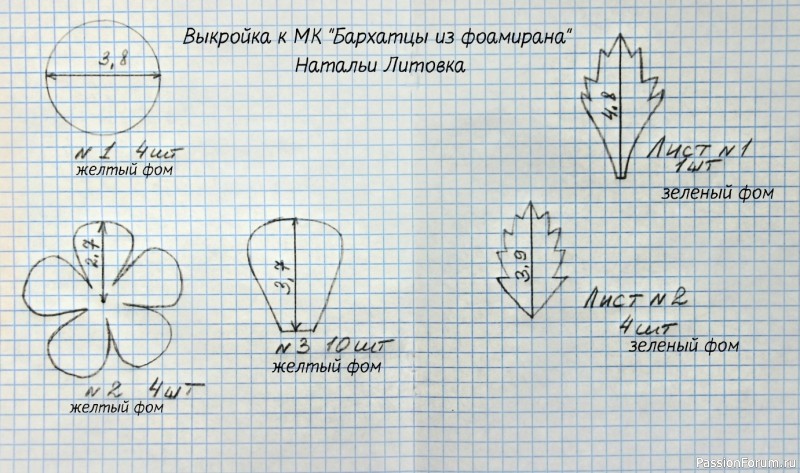 Выкройка к МК "Бархатцы из фоамирана"
Натальи Литовка
3,8
N1 4шт
желтый фом
4.8
Лист N1
1шт
зеленый фом
2,7
N2 4шт
желтый фом
3,7
N3 10шт
желтый фом
3,9
Лист N2
4шт
зеленый фом
PassionForum.ru